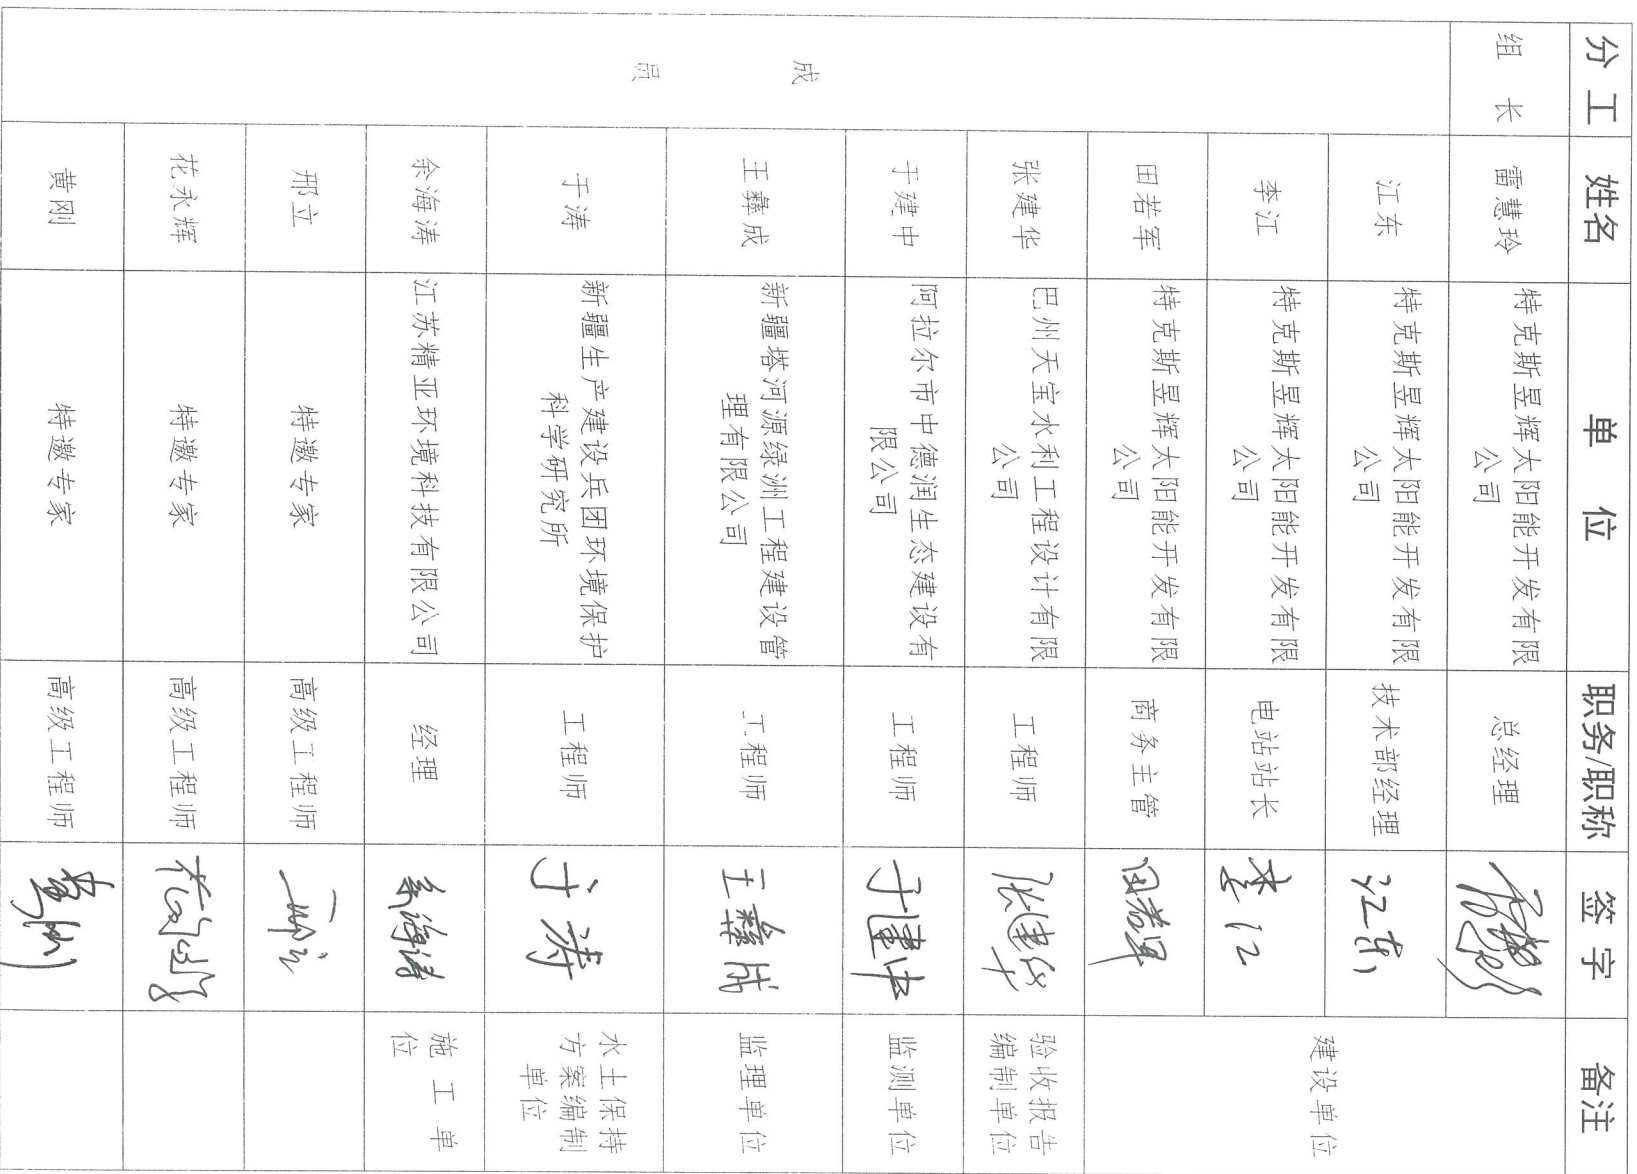 分工 姓名 单位 职务/职称 签字 备注
组长 雷慧玲 特克斯昱辉太阳能开发有限
公司 总经理 建设单位
成员
江东 特克斯昱辉太阳能开发有限
公司 技术部经理 江东
李江 特克斯昱辉太阳能开发有限
公司 电站站长 李江
田若军 特克斯昱辉太阳能开发有限
公司 商务主管 田若军
张建华 巴州天宝水利工程设计有限
公司 工程师 张建华 验收报告
编制单位
于建中 阿拉尔市中德润生态建设有
限公司 工程师 于建中 监测单位
王彝成 新疆塔河源绿洲工程建设管
理有限公司 工程师 王彝成 监理单位
于涛 新疆生产建设兵团环境保护
科学研究所 工程师 于涛 水土保持
方案编制
单位
余海涛 江苏精亚环境科技有限公司 经理 余海涛 施工单
位
邢立 特邀专家 高级工程师
花永辉 特邀专家 高级工程师
黄刚 特邀专家 高级工程师 黄刚